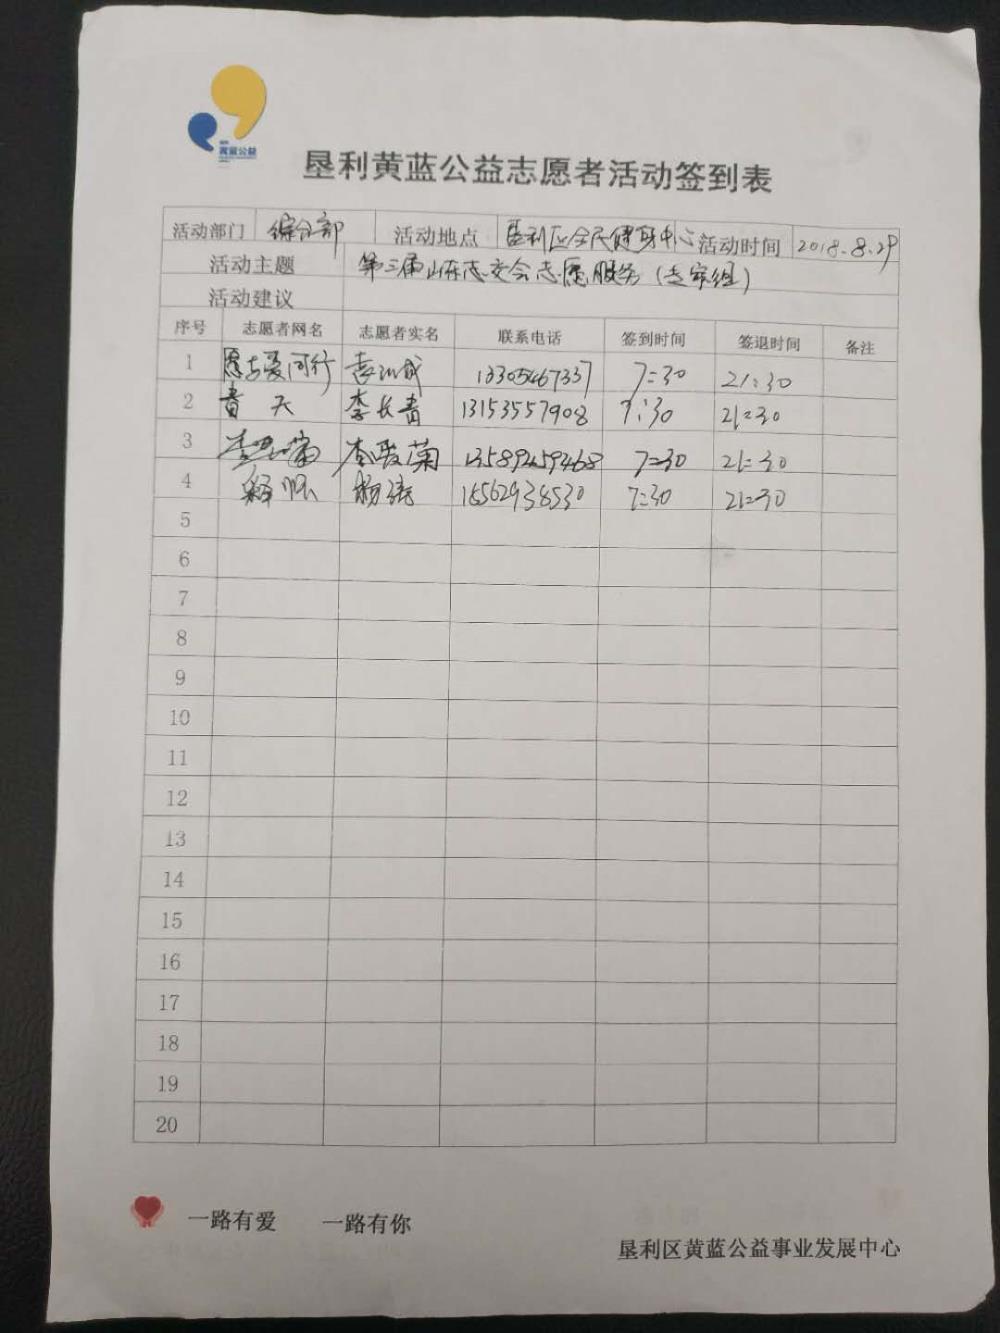 黄蓝公益
垦利黄蓝公益志愿者活动签到表
活动部门 综合部 活动地点 垦利区全民健身中心 活动时间 2018.8.29
活动主题 第三届山东志交会志愿服务(专家组)
活动建议
序号 志愿者网名 志愿者实名 联系电话 签到时间 签退时间 备注
1 13305467337 7:30 21:30
2 青天 李长青 13153557908 7:30 21:30
3 李爱菊 13589459468 7:30 21:30
4 18562938530 7:30 21:30
5
6
7
8
9
10
11
12
13
14
15
16
17
18
19
20
一路有爱 一路有你
垦利区黄蓝公益事业发展中心